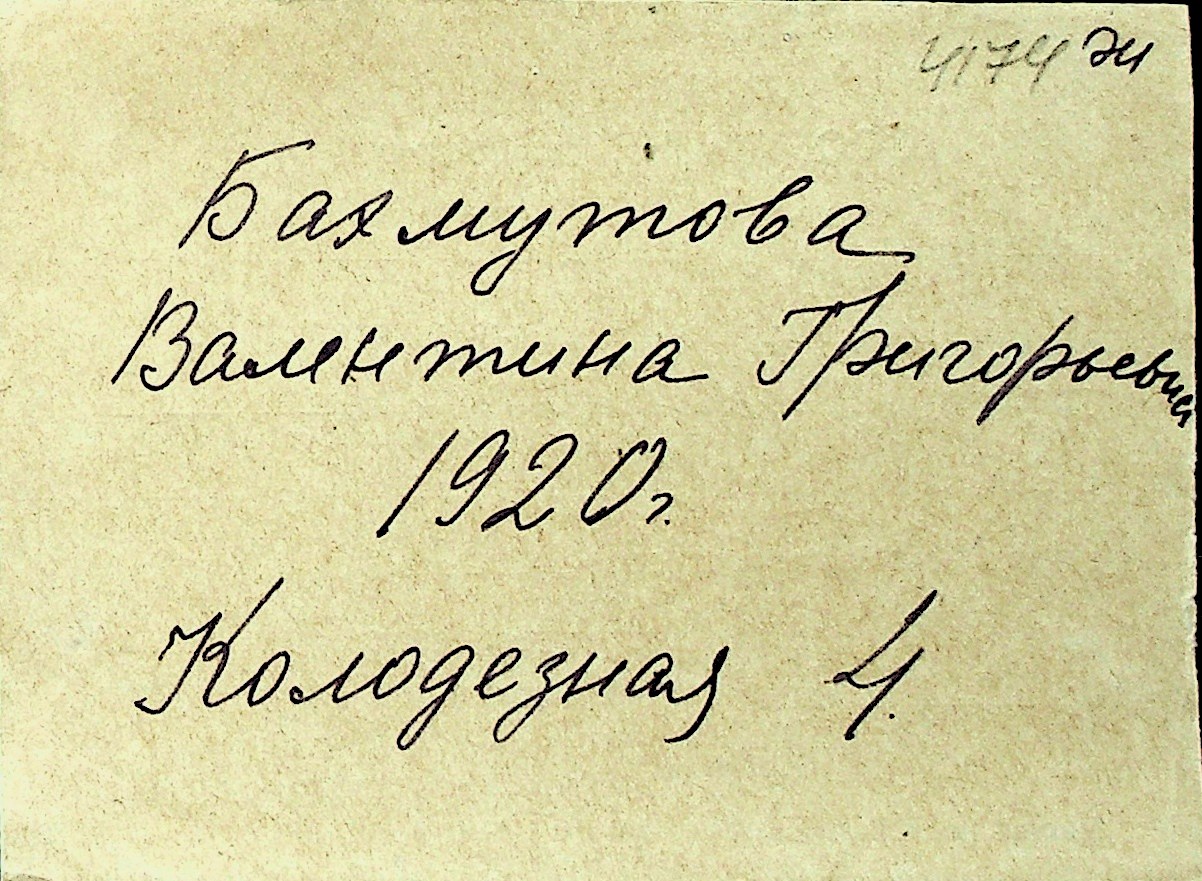 4174 эч
Бахмутова
Валентина Григорьевна
1920г.
Колодезная 4.